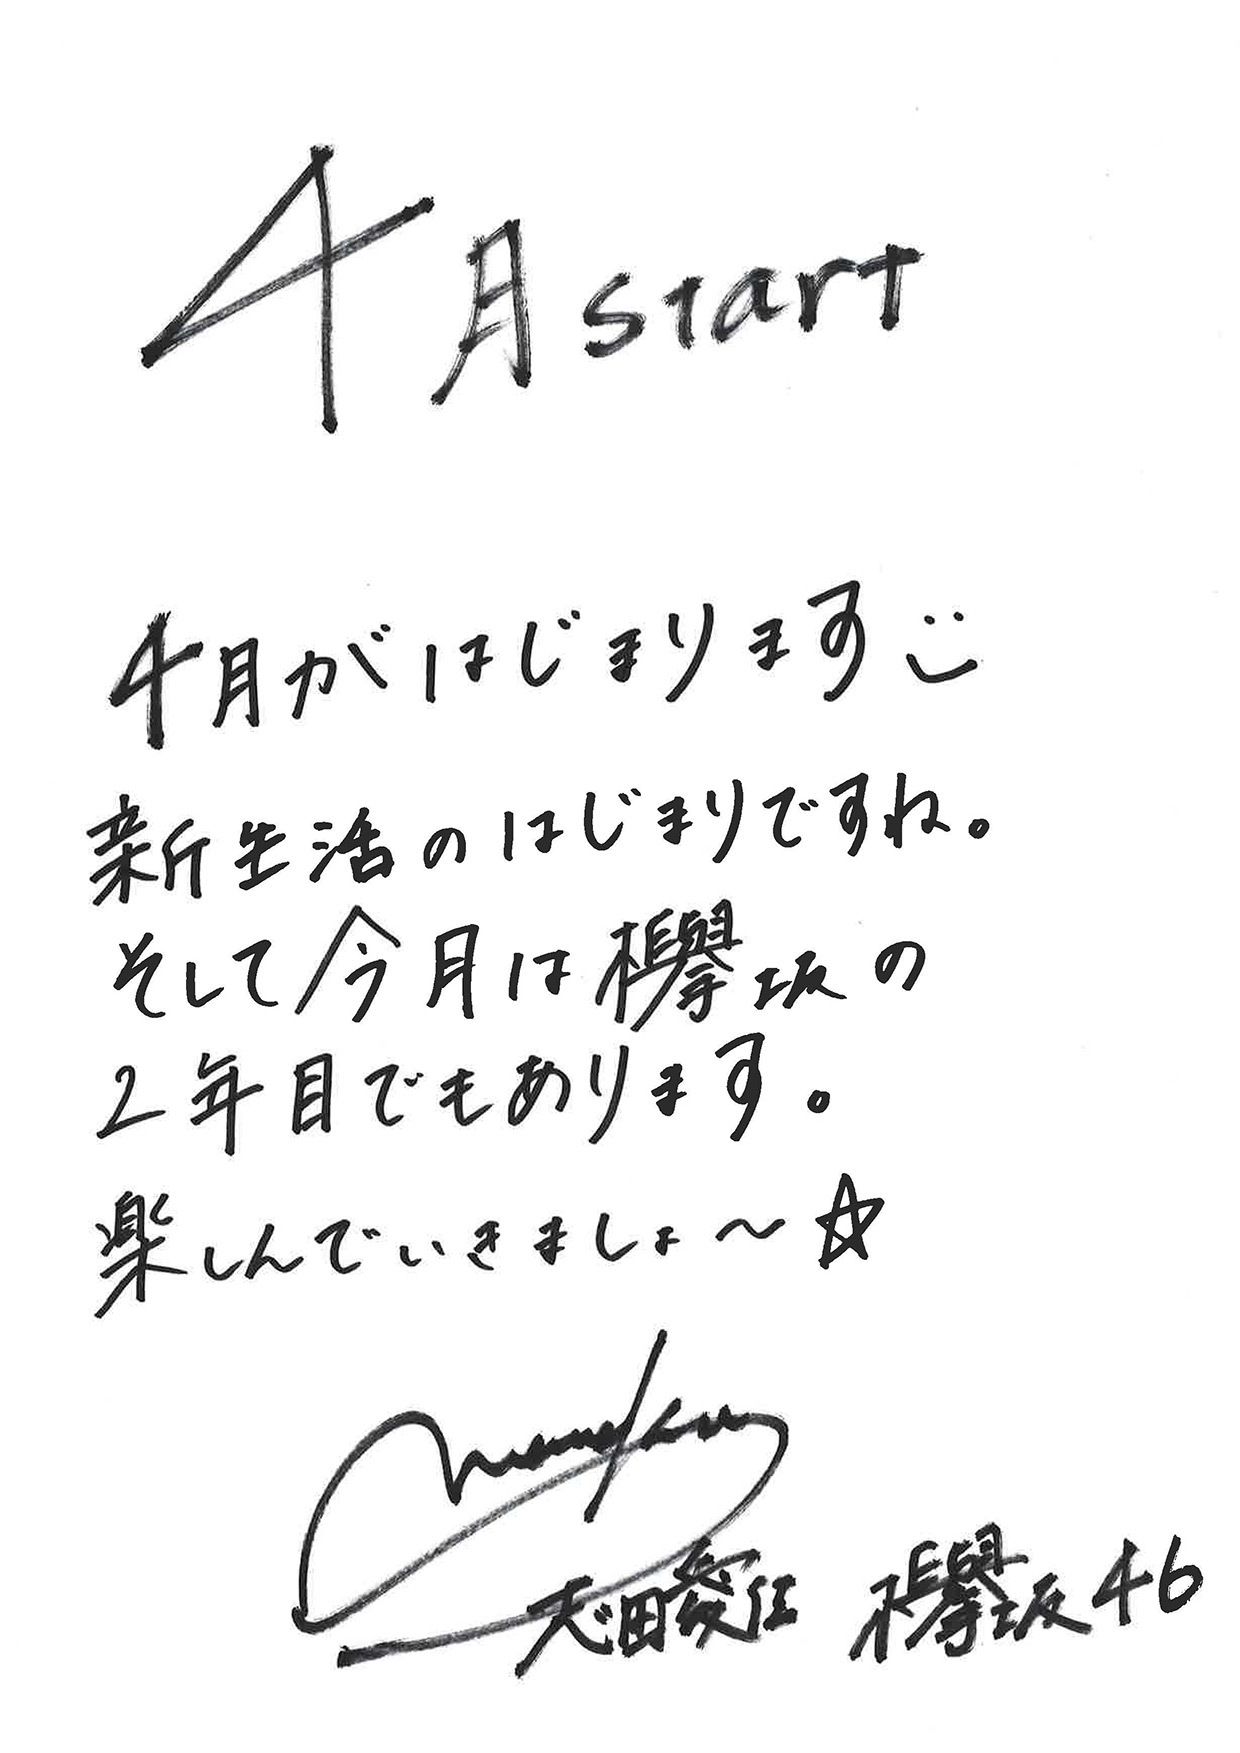 4月start
4月がはじまります
新生活のはじまりですね。
そして今月は欅坂の
2年目でもあります。
楽しんでいきましょ〜☆
志田愛佳 欅坂46